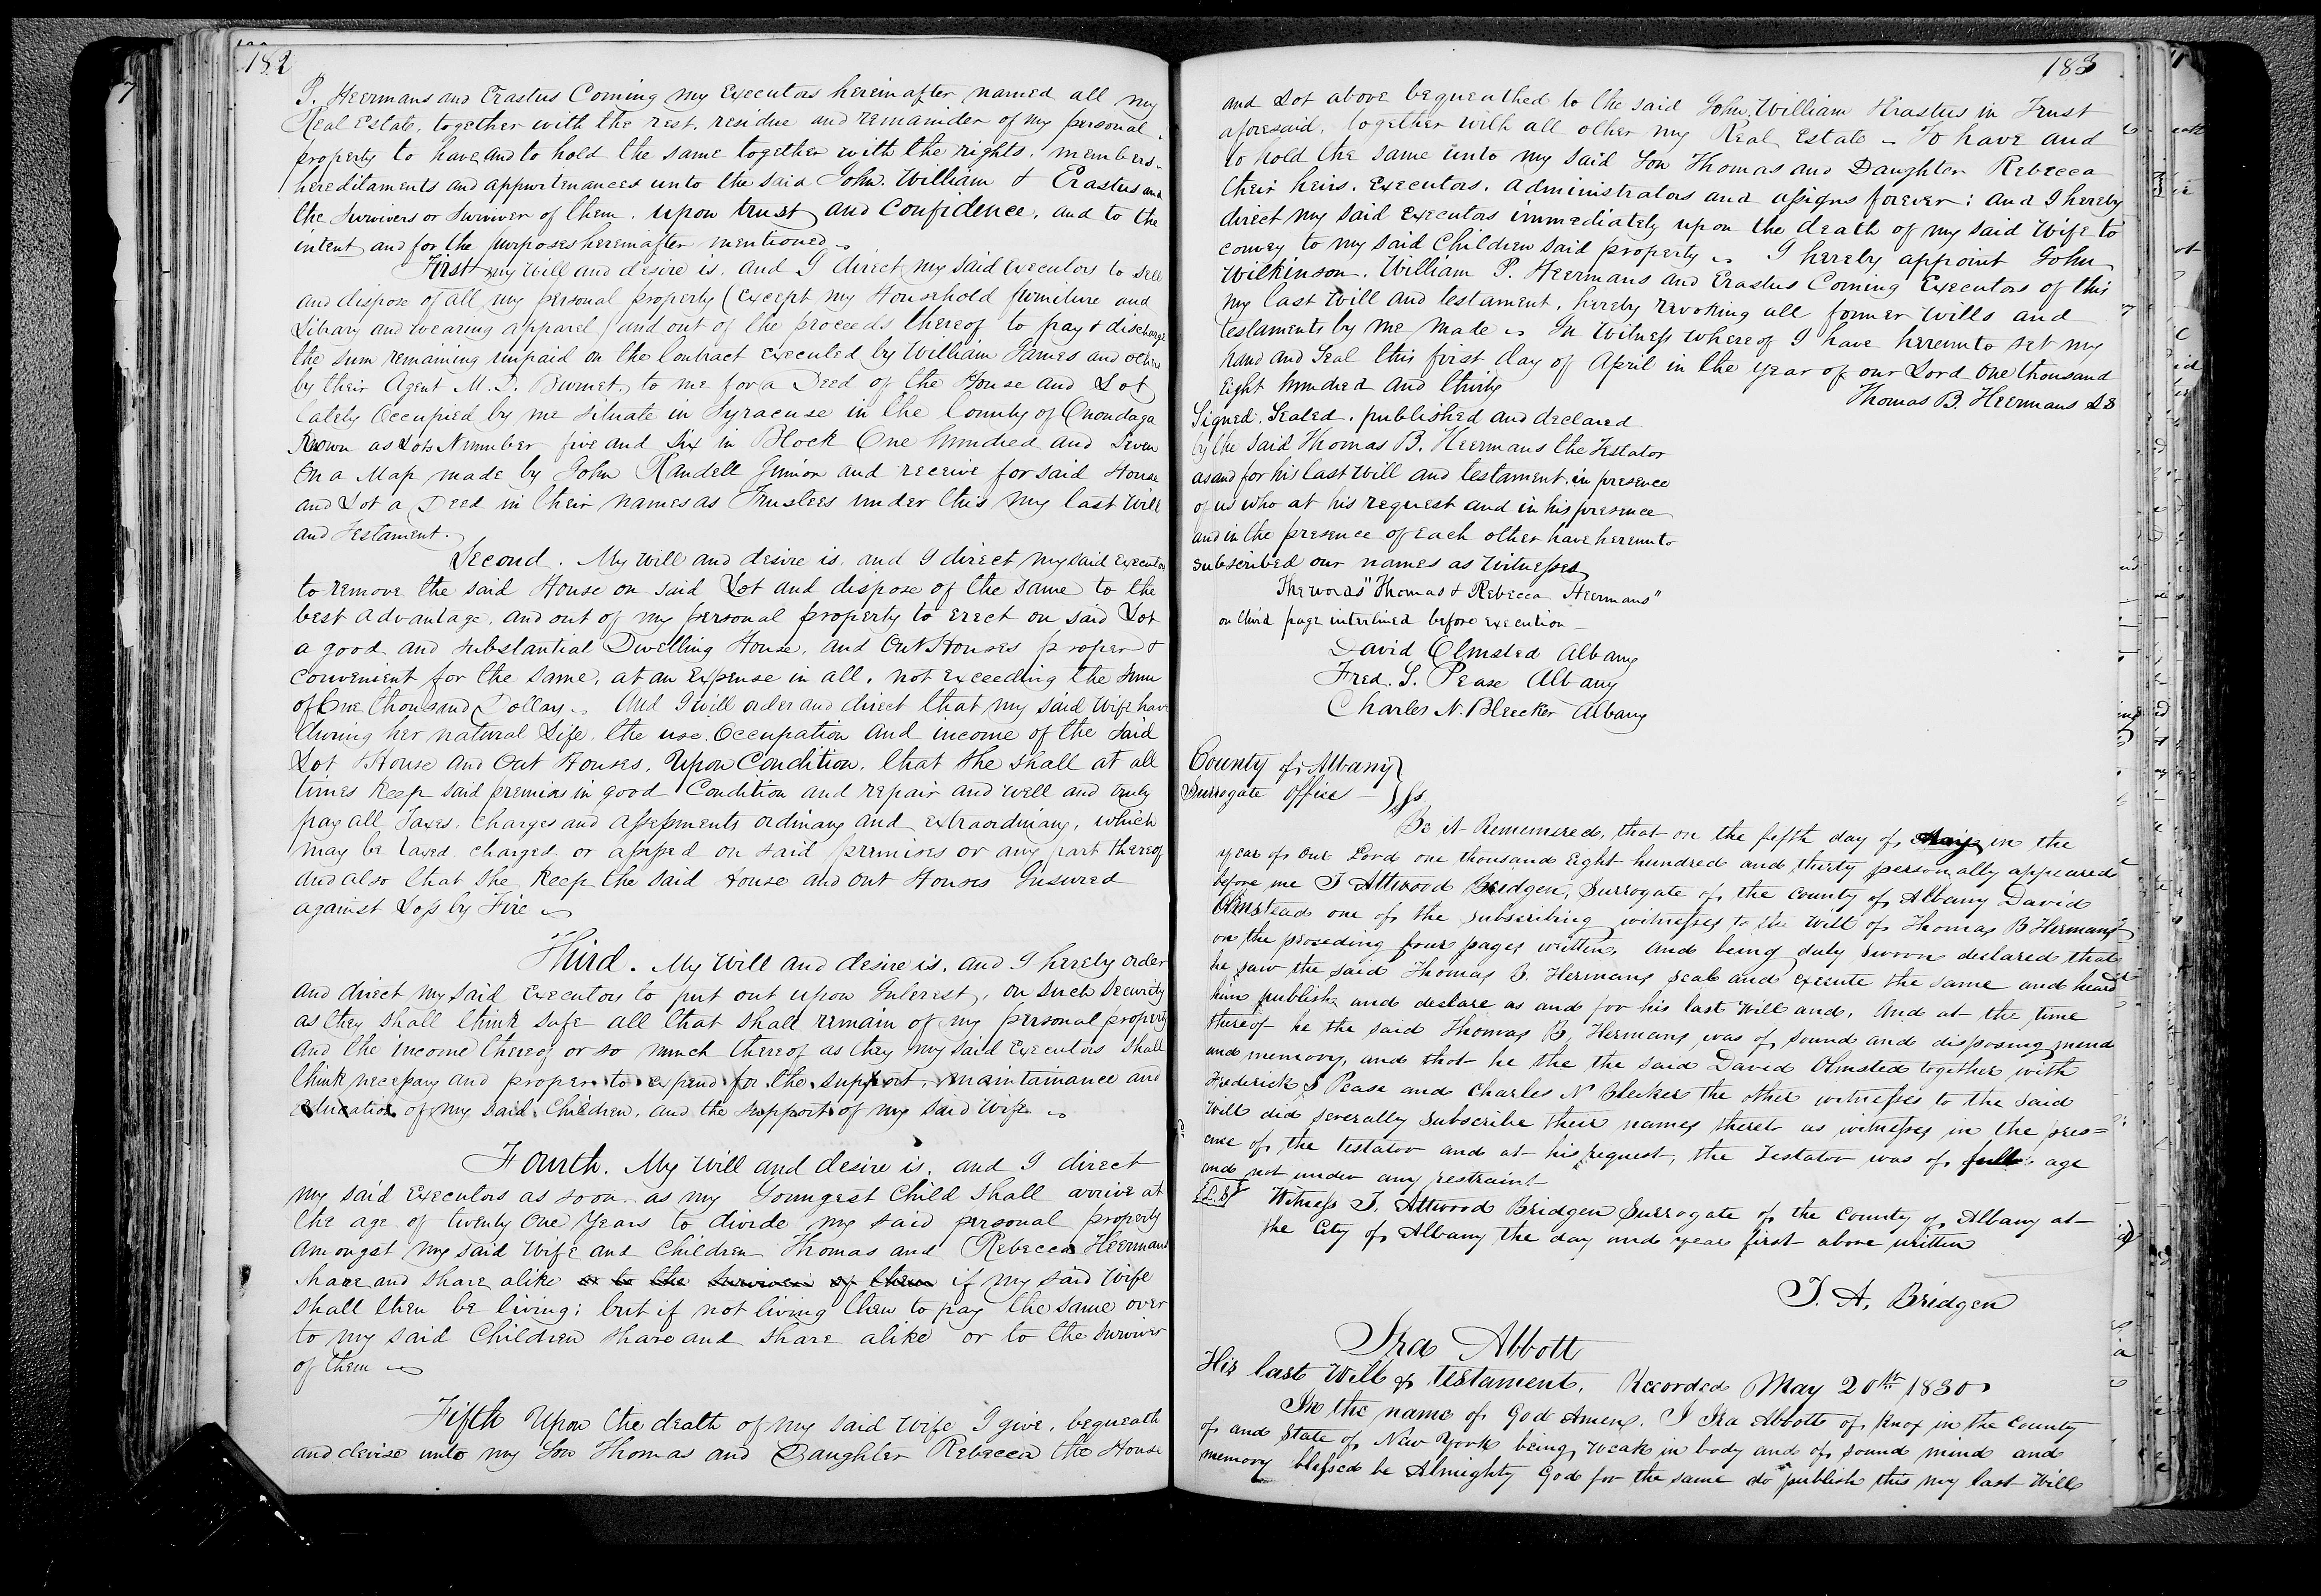 182
P. Heermans and Erastus Corning my Executors hereinafter named all my
Real Estate, together with the rest, residue and remainder of my personal
property to have and to hold the same together with the rights, members,
hereditaments and appurtenances unto the said John, William & Erastus and
the survivers or surviver of them, upon trust and Confidence, and to the
intent and for the purposes hereinafter mentioned
First my Will and desire is, and I direct my said Executors to sell
and dispose of all my personal property (Except my Household furniture and
Library and wearing apparel) and out of the proceeds thereof to pay & discharge
the sum remaining unpaid on the Contract executed by William James and others
by their Agent M. D. Burnet, to me for a Deed of the House and Lot
lately Occupied by me situate in Syracuse in the County of Onondaga
Known as Lots Number five and Six in Block One hundred and Seven
On a Map made by John Randell Junior and receive for said House
and Lot a Deed in their names as Trustees under this my last Will
and Testament.
Second. My Will and desire is, and I direct my said Executors
to remove the said House on said Lot and dispose of the same to the
best advantage, and out of my personal property to Erect on said Lot
a good and substantial Dwelling House, and Out Houses proper &
convenient for the same, at an Expense in all, not Exceeding the sum
of One thousand Dollars. And I will order and direct that my said Wife have
during her natural Life, the use, Occupation and income of the said
Lot & House and Out Houses, Upon Condition, that She shall at all
times keep said premises in good Condition and repair and well and truly
pay all Taxes, Charges and assessments ordinary and extraordinary, which
may be taxed charged or assessed on said premises or any part thereof
and also that she keep the said House and Out Houses Insured
against Loss by Fire
Third. My Will and desire is, and I hereby order
and direct my said Executors to put out upon Interest, on such Security
as they shall think safe all that shall remain of my personal property
and the income thereof or so much thereof as they my said Executors shall
think necessary and proper to expend for the support, maintainance and
education of my said Children, and the support of my said Wife
Fourth. My Will and desire is, and I direct
my said Executors as soon as my Youngest Child shall arrive at
the age of twenty One Years to divide my said personal property
amongst my said Wife and Children Thomas and Rebecca Heermans
share and share alike or to the Survivers of them if my said Wife
shall then be living; but if not living then to pay the same over
to my said Children share and share alike or to the surviver
of them
Fifth Upon the death of my said Wife I give, bequeath
and devise unto my Son Thomas and Daughter Rebecca the House
183
and Lot above bequeathed to the said John, William & Erastus in Trust
aforesaid, together with all other my Real Estate - To have and
to hold the same unto my said Son Thomas and Daughter Rebecca
their heirs, Executors, Administrators and assigns forever; and I hereby
direct my said Executors immediately upon the death of my said Wife to
convey to my said Children said property. I hereby appoint John
Wilkinson, William P. Heermans and Erastus Corning Executors of this
my last Will and testament, hereby revoking all former Wills and
testaments by me made. In Witness whereof I have hereunto set my
hand and Seal this first day of April in the year of our Lord One thousand
Eight hundred and thirty
Thomas B. Heermans LS
Signed, Sealed, published and declared
by the said Thomas B. Heermans the Testator
as and for his last Will and testament, in presence
of us who at his request and in his presence
and in the presence of each other have hereunto
subscribed our names as Witnesses
The words "Thomas & Rebecca Heermans"
on third page interlined before execution
David Olmsted Albany
Fred. S. Pease Albany
Charles N. Bleecker Albany
County of Albany }
Surrogate Office } ss
Be it Remembered, that on the fifth day of May in the
year of Our Lord one thousand Eight hundred and thirty personally appeared
before me T Attwood Bridgen, Surrogate of the County of Albany David
Olmstead one of the subscribing witnesses to the Will of Thomas B Hermans
on the preceding four pages written, and being duly sworn declared that
he saw the said Thomas B. Hermans seal and execute the same and heard
him publish and declare as and for his last Will and, And at the time
thereof he the said Thomas B. Hermans was of sound and disposing mind
and memory, and that he the the said David Olmsted together with
Frederick S Pease and Charles N Bleeker the other witnesses to the said
Will did severally subscribe their names thereto as witnesses in the pres=
ence of the testator and at his request, the Testator was of full age
and not under any restraint
L.S. Witness T. Attwood Bridgen Surrogate of the County of Albany at
the City of Albany the day and year first above written
T. A. Bridgen
Ira Abbott
His last Will & testament. Recorded May 20th 1830
In the name of God Amen. I Ira Abbott of Knox in the County
of and State of New York being weak in body and of sound mind and
memory blessed be Almighty God for the same do publish this my last Will